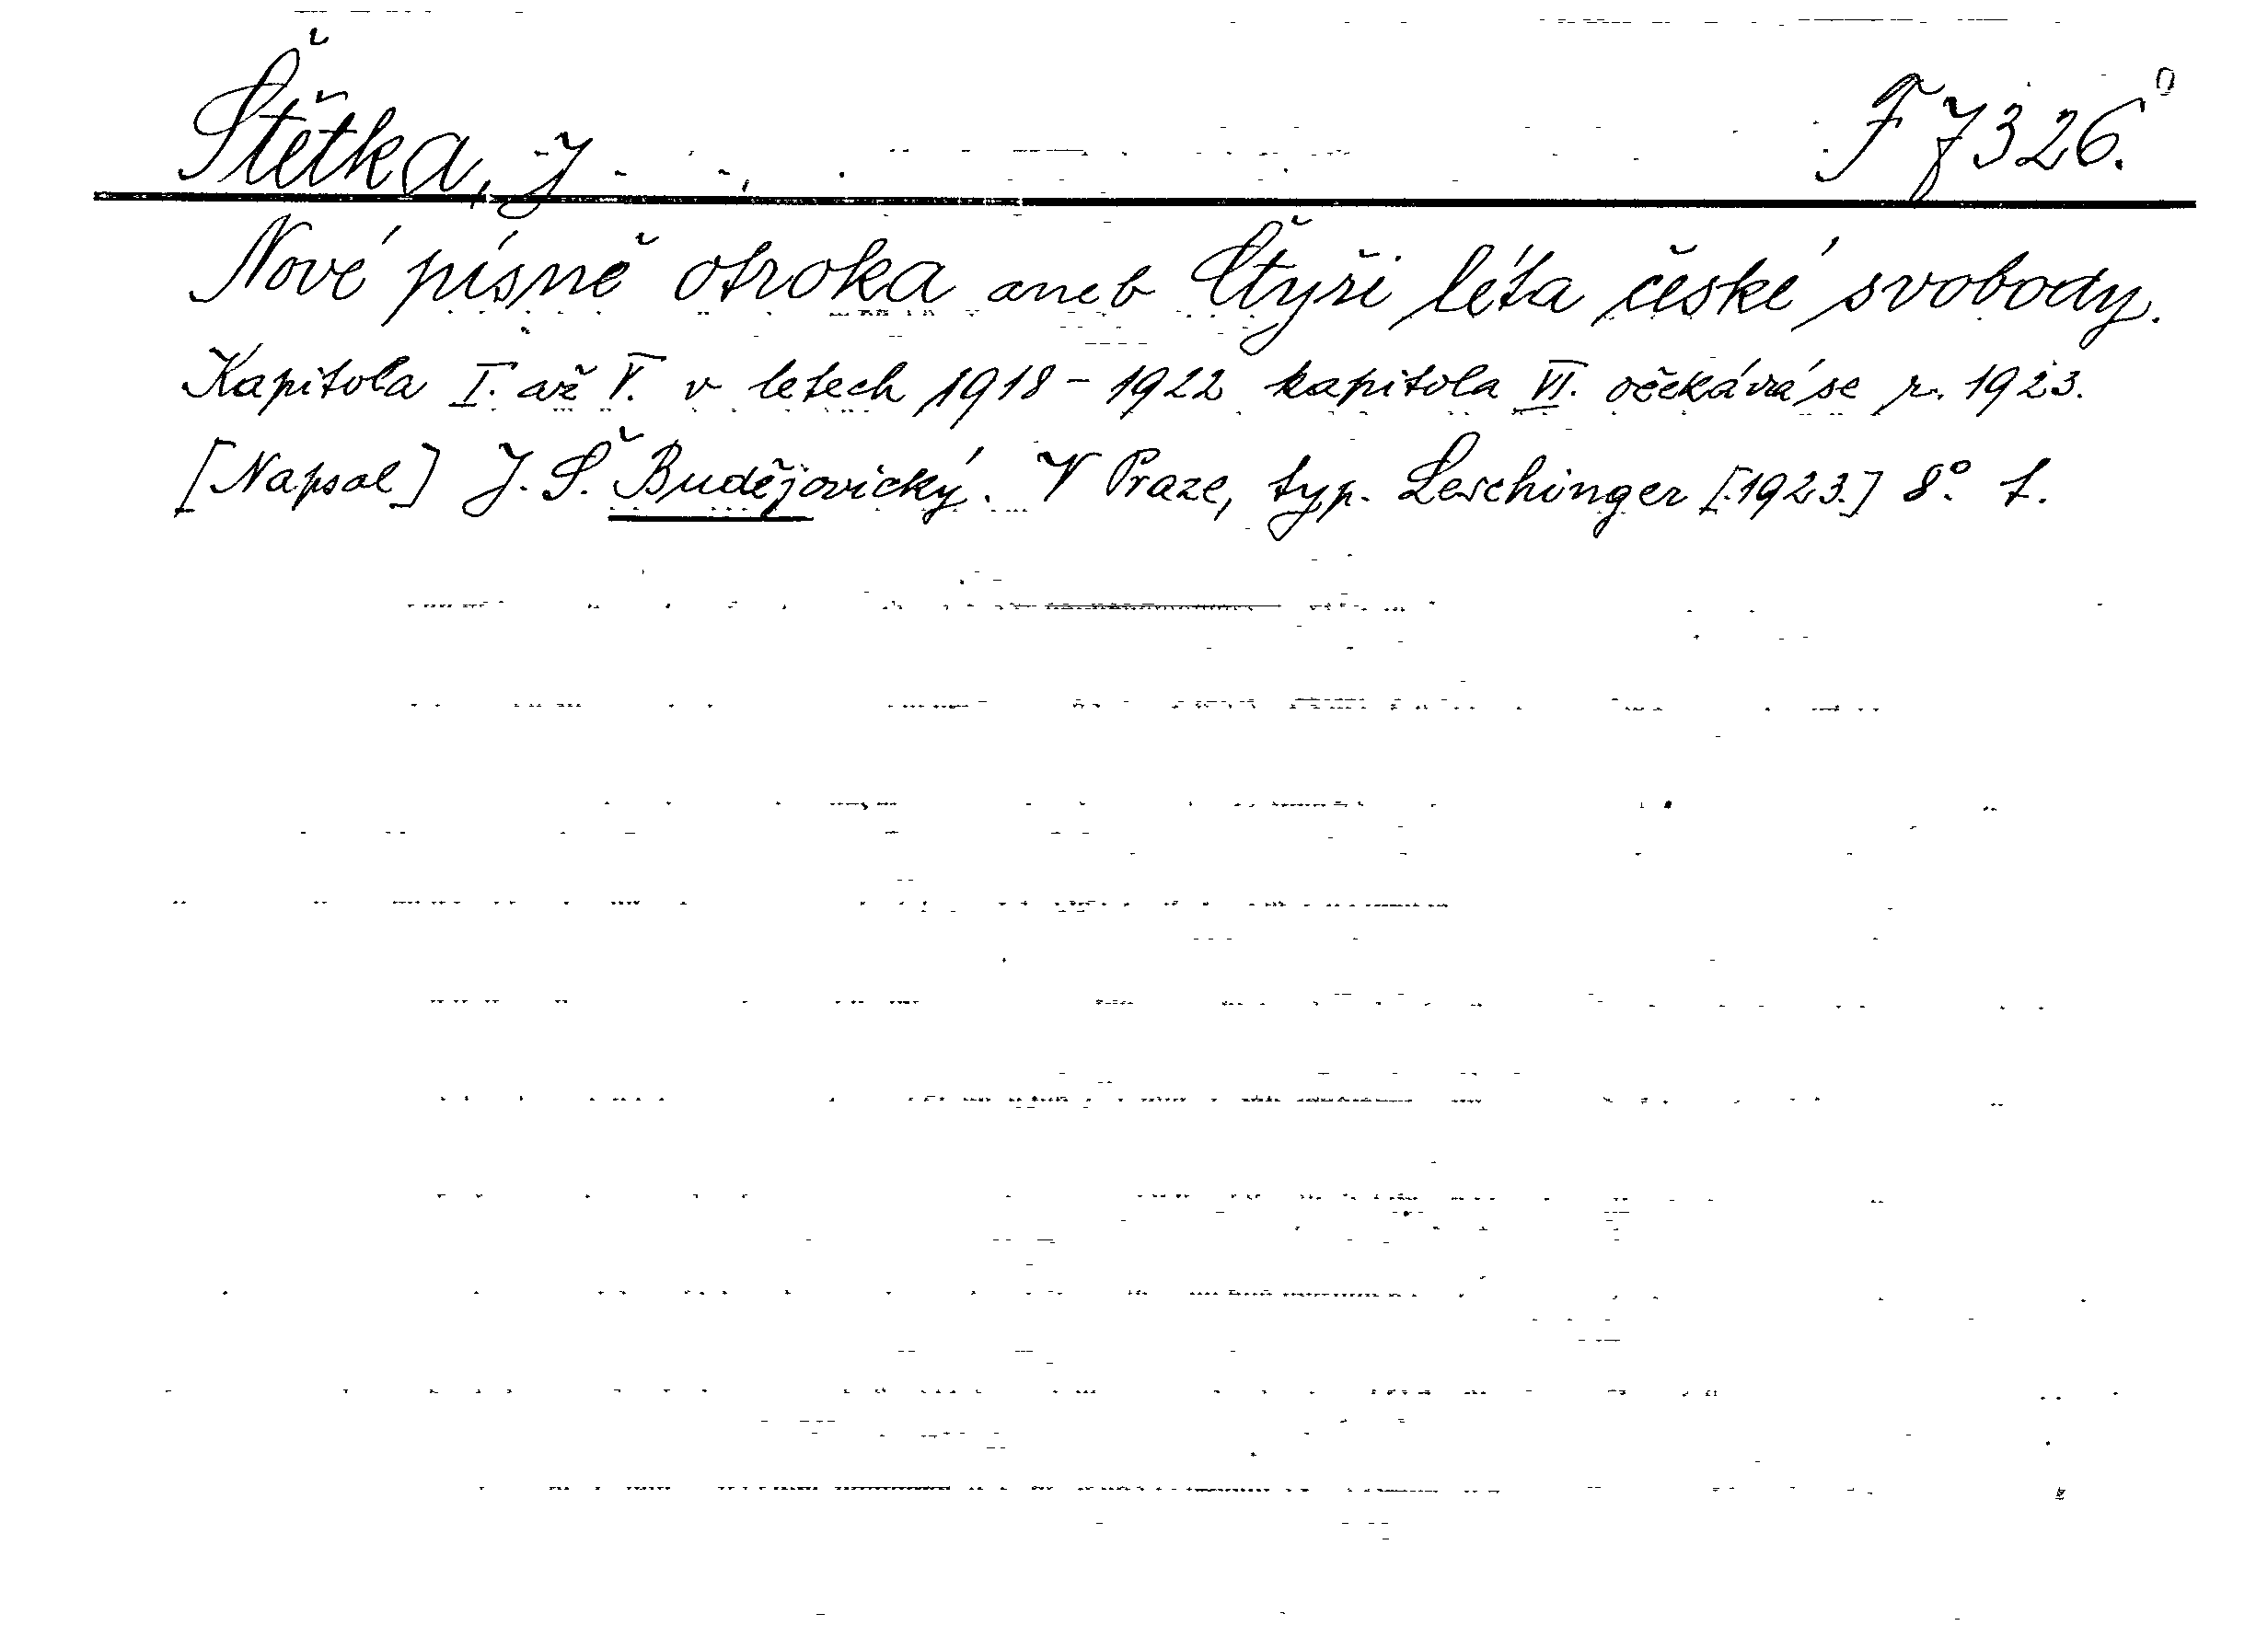 Štětka, J - -, F 7326.°
Nové písně otroka aneb Čtyři léta české svobody.
Kapitola I. až V. v letech 1918 - 1922 kapitola VI. očekává se r. 1923.
[Napsal] J. Š. Budějovický. V Praze, typ. Leschinger [1923.] 8°. 1.